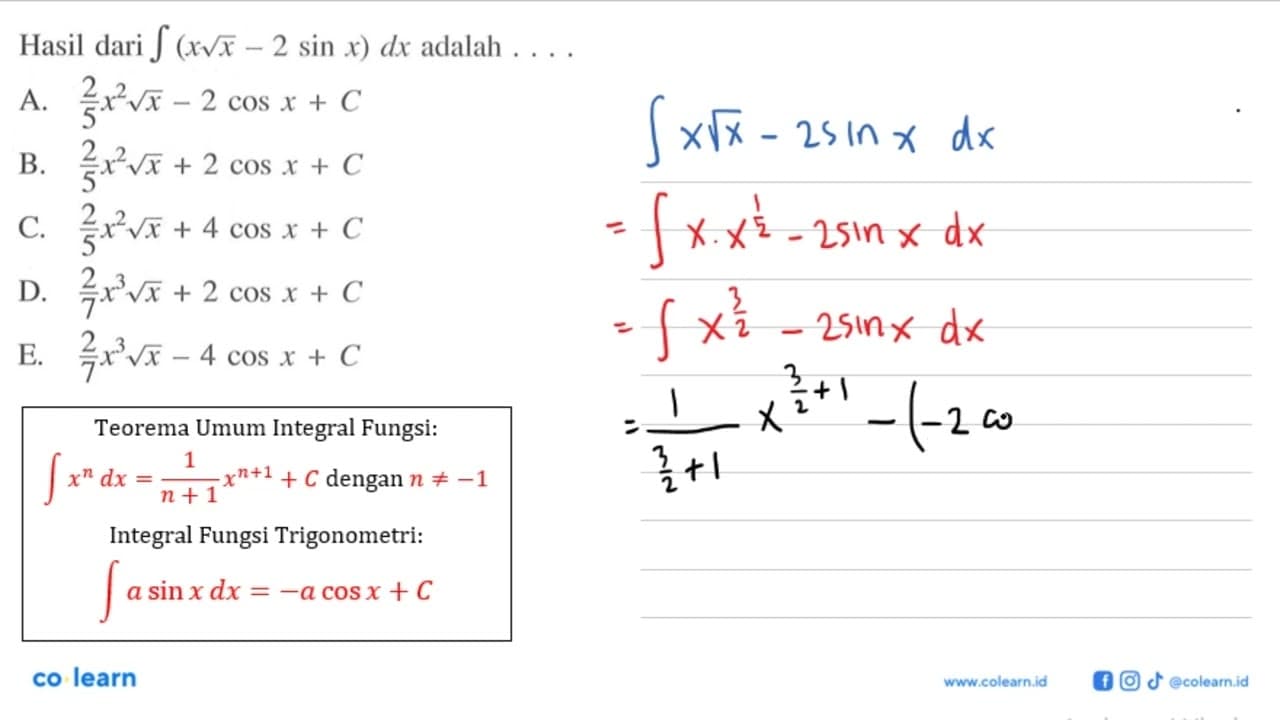 Hasil dari ∫ (x√x − 2 sin x) dx adalah . . . .
A. 2/5 x²√x − 2 cos x + C
B. 2/5 x²√x + 2 cos x + C
C. 2/5 x²√x + 4 cos x + C
D. 2/7 x³√x + 2 cos x + C
E. 2/7 x³√x − 4 cos x + C
Teorema Umum Integral Fungsi:
∫ xⁿ dx = 1/(n + 1) xⁿ⁺¹ + C dengan n ≠ −1
Integral Fungsi Trigonometri:
∫ a sin x dx = −a cos x + C
∫ x√x − 2 sin x dx
= ∫ x . x^(1/2) − 2 sin x dx
= ∫ x^(3/2) − 2 sin x dx
= 1/(3/2 + 1) x^(3/2 + 1) − (−2 co
co learn
www.colearn.id @colearn.id